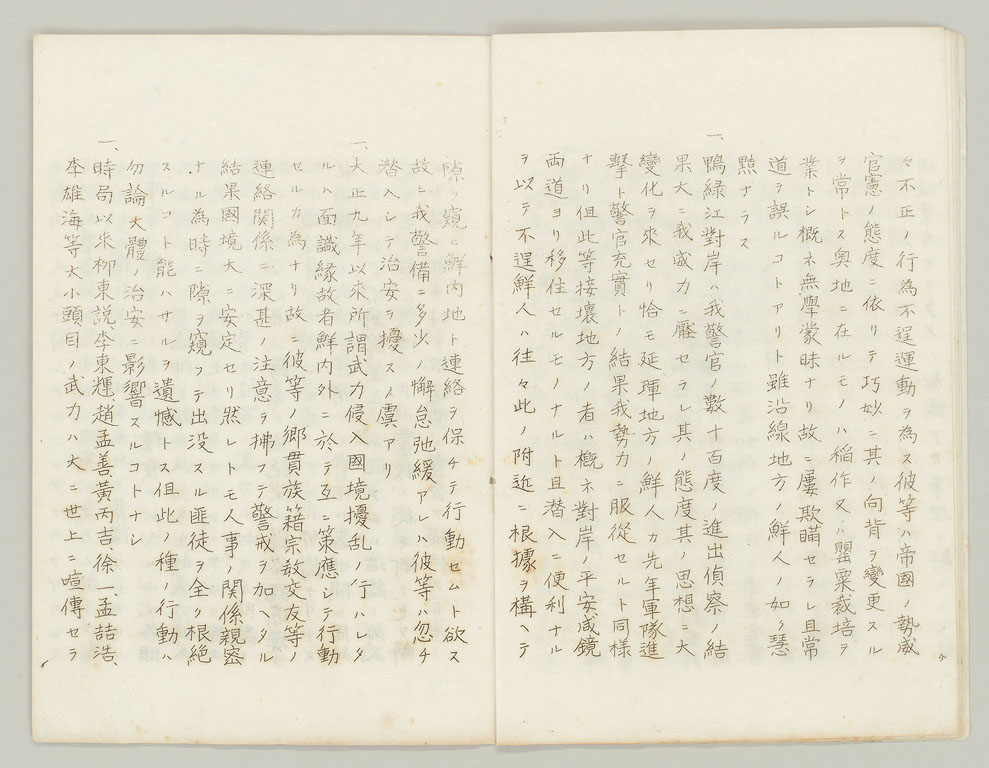 々不正ノ行為不逞運動ヲ為ス彼等ハ帝國ノ勢威
官憲ノ態度ニ依リテ巧妙ニ其ノ向背ヲ變更スル
ヲ常トス奥地ニ在ルモノハ稲作又ハ罌粟栽培ヲ
業トシ概ネ無學蒙昧ナリ故ニ屢欺瞞セラレ且常
道ヲ誤ルコトアリト雖沿線地方ノ鮮人ノ如ク慧
黠ナラス
一、鴨緑江對岸ハ我警官ノ數十百度ノ進出偵察ノ結
果大ニ我威力ニ壓セラレ其ノ態度其ノ思想ニ大
變化ヲ來セリ恰モ延琿地方ノ鮮人カ先年軍隊進
擊ト警官充實トノ結果我勢力ニ服從セルト同様
ナリ但此等接壤地方ノ者ハ概ネ對岸ノ平安咸鏡
両道ヨリ移住セルモノナルト且潜入ニ便利ナル
ヲ以テ不逞鮮人ハ往々此ノ附近ニ根據ヲ構ヘテ
隙ヲ窺ヒ鮮内地ト連絡ヲ保チテ行動セムト欲ス
故ニ我警備ニ多少ノ懈怠弛緩アレハ彼等ハ忽チ
潜入シテ治安ヲ擾スノ虞アリ
一、大正九年以來所謂武力侵入國境擾乱ノ行ハレタ
ルハ面識縁故者鮮内外ニ於テ互ニ策應シテ行動
セルカ為ナリ故ニ彼等ノ郷貫族籍宗教交友等ノ
連絡関係ニ深甚ノ注意ヲ拂フテ警戒ヲ加ヘタル
結果國境大ニ安定セリ然レトモ人事ノ関係親密
ナル為時ニ隙ヲ窺フテ出没スル匪徒ヲ全ク根絶
スルコト能ハサルヲ遺憾トス但此ノ種ノ行動ハ
勿論大體ノ治安ニ影響スルコトナシ
一、時局以來柳東説李東輝趙孟善黃丙吉徐一孟喆浩、
李雄海等大小頭目ノ武力ハ大ニ世上ニ喧傳セラ